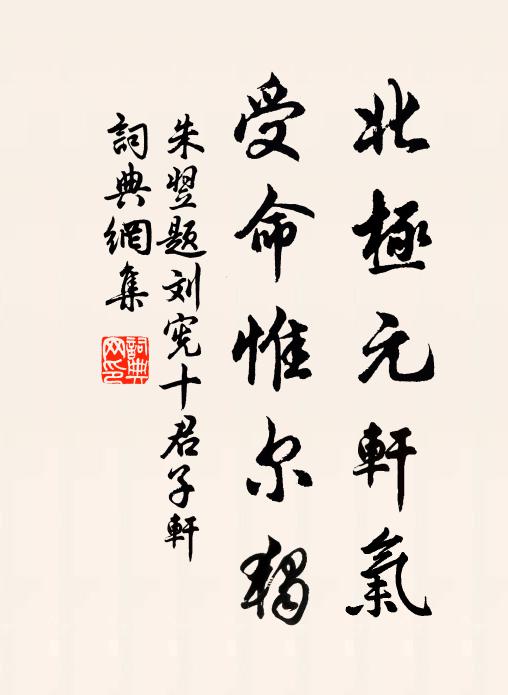 北極元軒氣
受命惟尔獨
朱翌题刘宪十君子軒
詞典網集
詞典網印